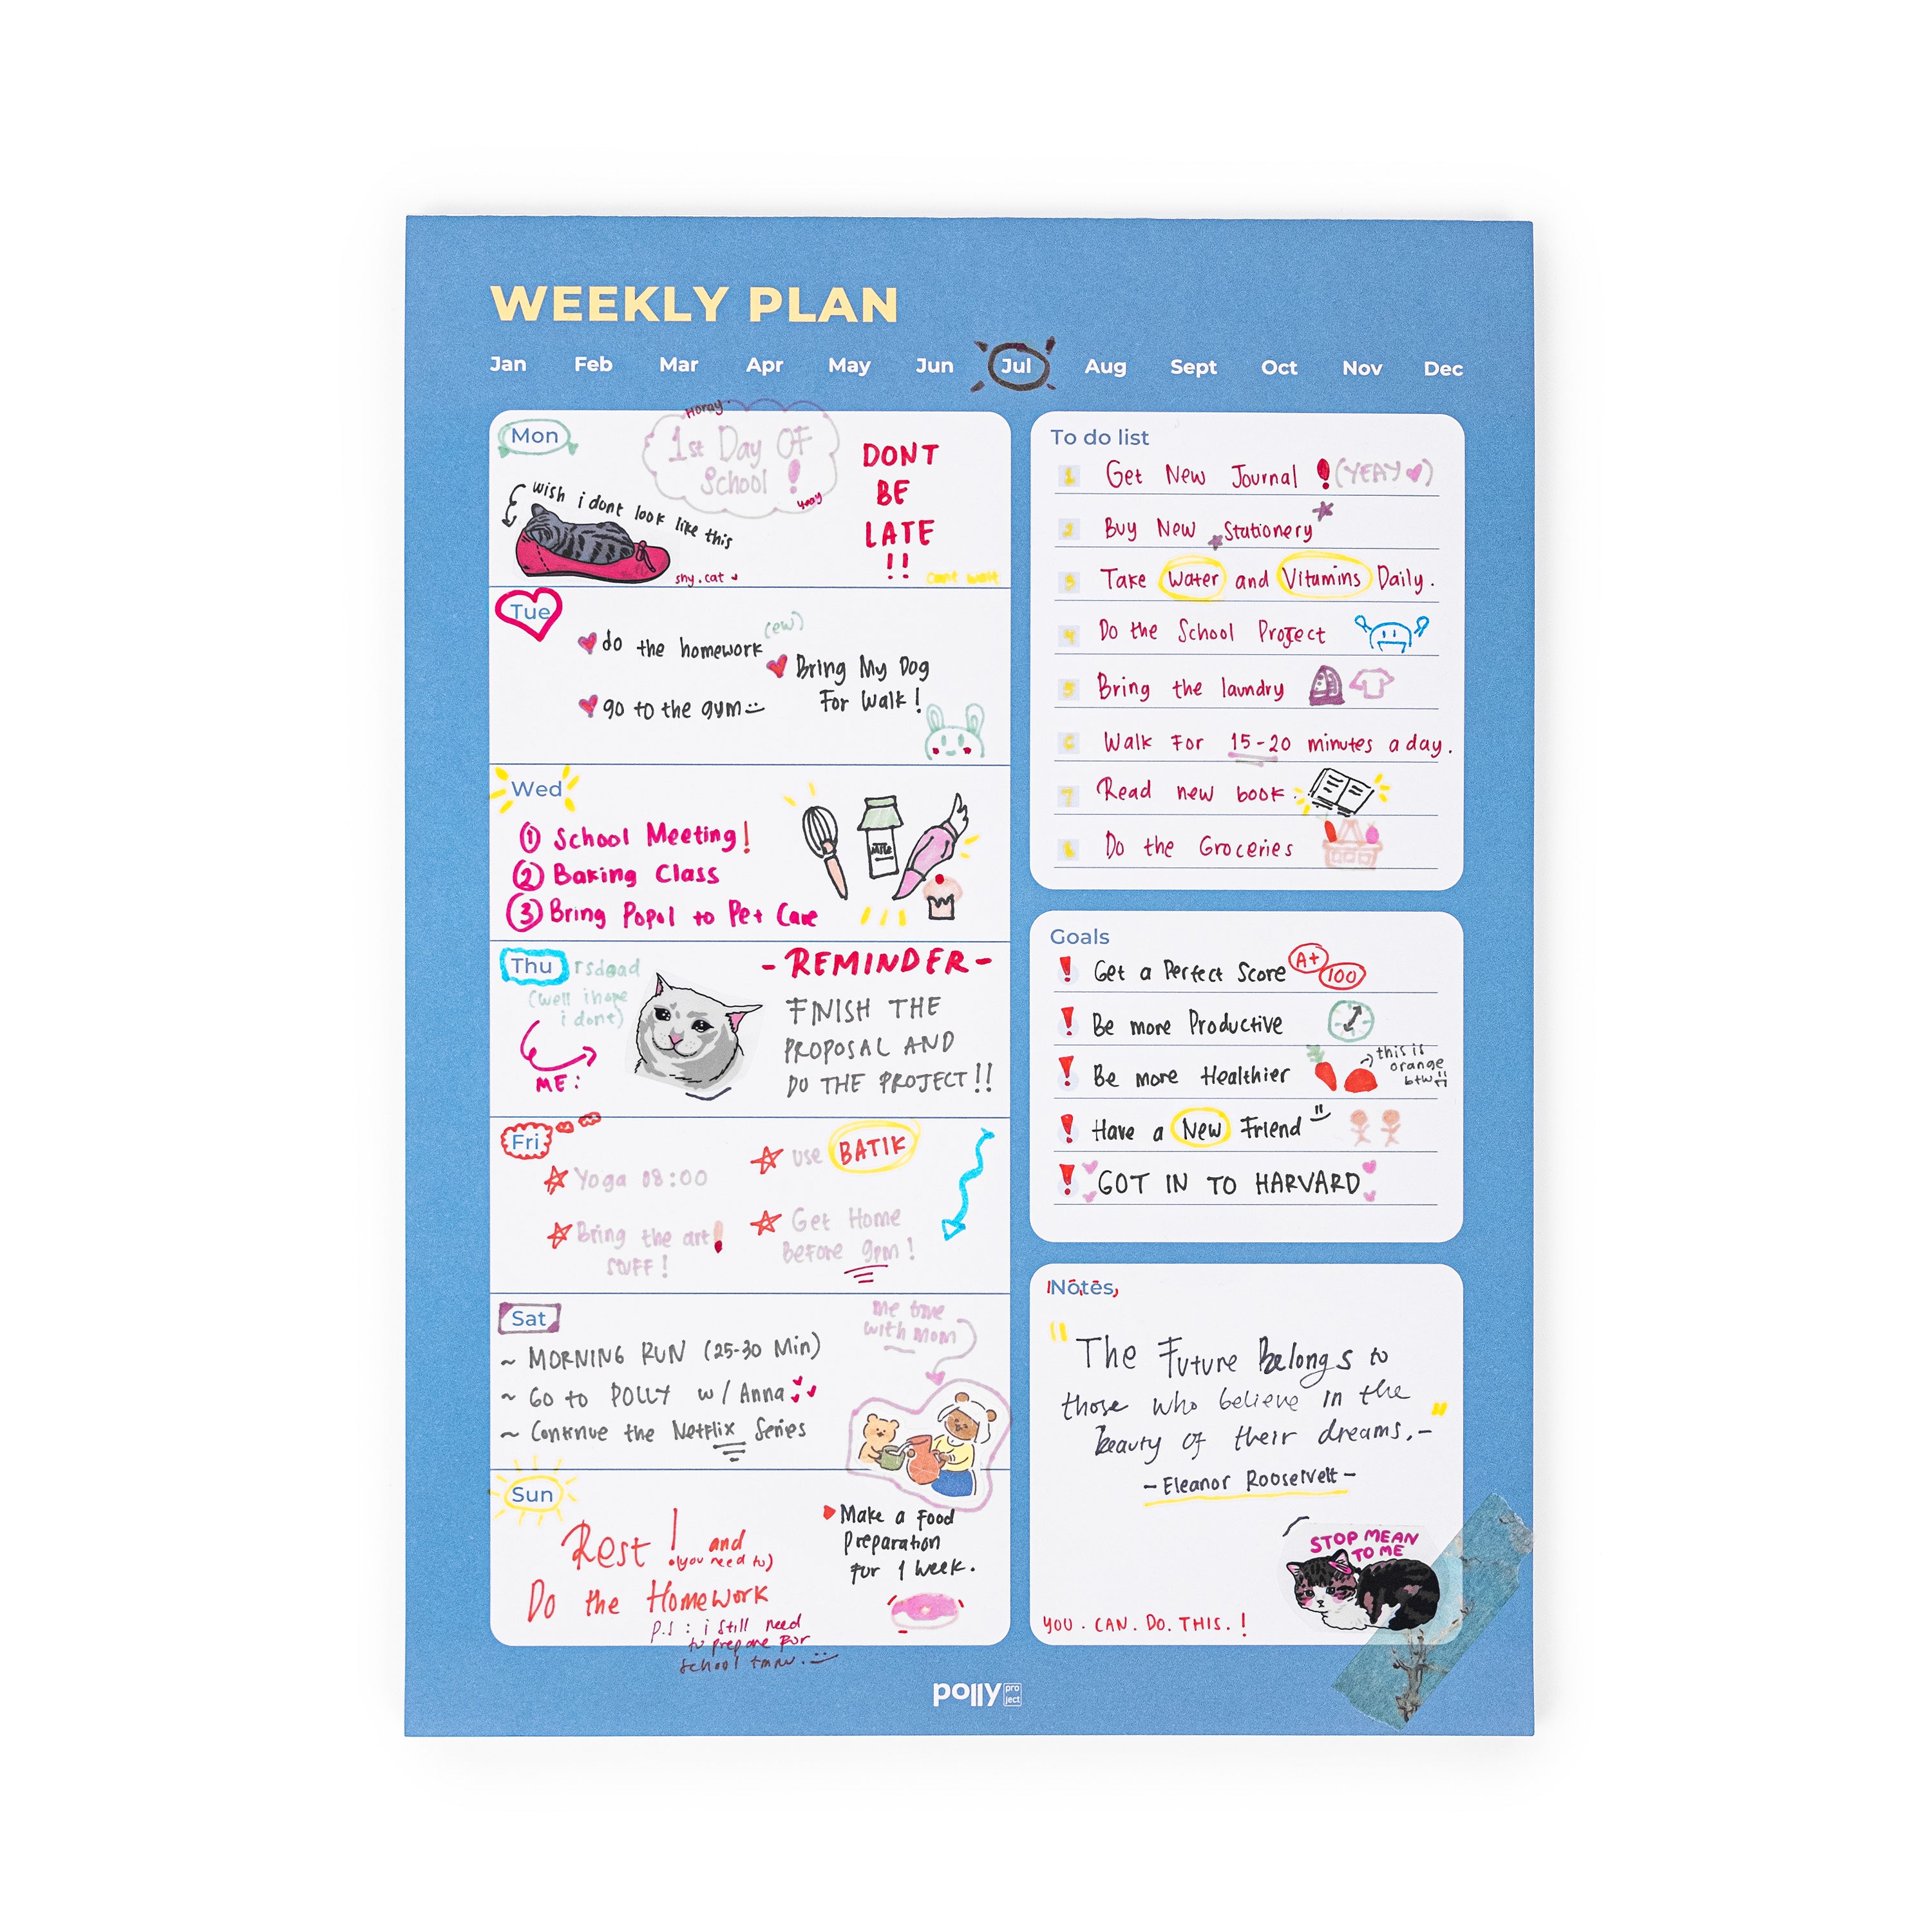 WEEKLY PLAN
Jan Feb Mar Apr May Jun Jul Aug Sept Oct Nov Dec
Mon
Horay
1st Day OF
School !
yeay
DONT
BE
LATE
!!
wish i dont look like this
shy.cat
Cant wait
Tue
do the homework
(ew)
go to the gym
Bring My Dog
For Walk!
Wed
① School Meeting!
② Baking Class
③ Bring Popol to Pet Care
MILK
Thu rsdead
(well i hope
i dont)
ME:
-REMINDER-
FINISH THE
PROPOSAL AND
DO THE PROJECT!!
Fri
Yoga 08:00
use BATIK
Bring the art
stuff!
Get Home
Before 9pm!
Sat
~ MORNING RUN (25-30 Min)
~ Go to POLLY w/ Anna
~ Continue the Netflix Series
me time
with Mom
Sun
Rest! and
(you need to)
Do the Homework
p.s : i still need
to prepare for
school tmrw.
Make a Food
Preparation
For 1 week.
To do list
1 Get New Journal ! (YEAY)
2 Buy New Stationery
3 Take Water and Vitamins Daily.
4 Do the School Project
5 Bring the laundry
6 Walk For 15-20 minutes a day.
7 Read new book.
8 Do the Groceries
Goals
! Get a Perfect Score A+ 100
! Be more Productive
! Be more Healthier
this is
orange
btw
! Have a New Friend
! GOT IN TO HARVARD
Notes
"The Future Belongs to
those who believe in the
beauty of their dreams.-"
-Eleanor Roosevelt-
STOP MEAN
TO ME
YOU. CAN. DO. THIS. !
polly
pro
ject